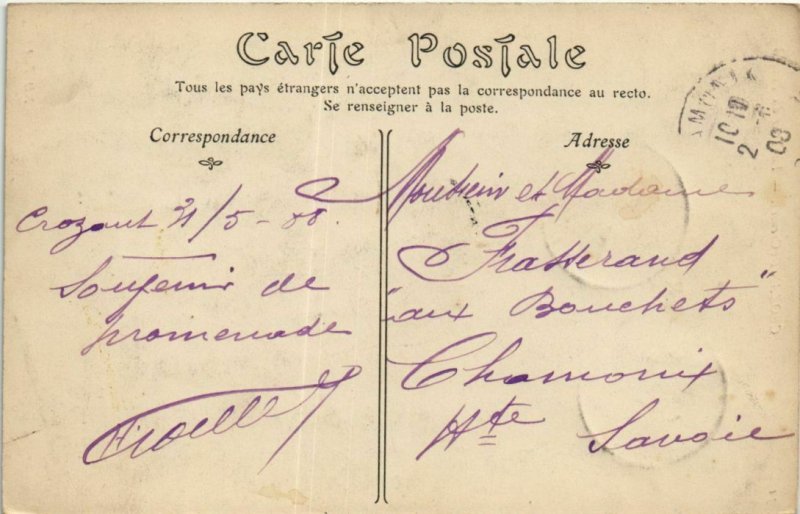 Carte Postale
Tous les pays étrangers n'acceptent pas la correspondance au recto.
Se renseigner à la poste.
Correspondance
Adresse
Crozant 31/5-08.
Souvenir de
promenade
Monsieur et Madame
Frasserand
"aux Bouchets"
Chamonix
Hte Savoie